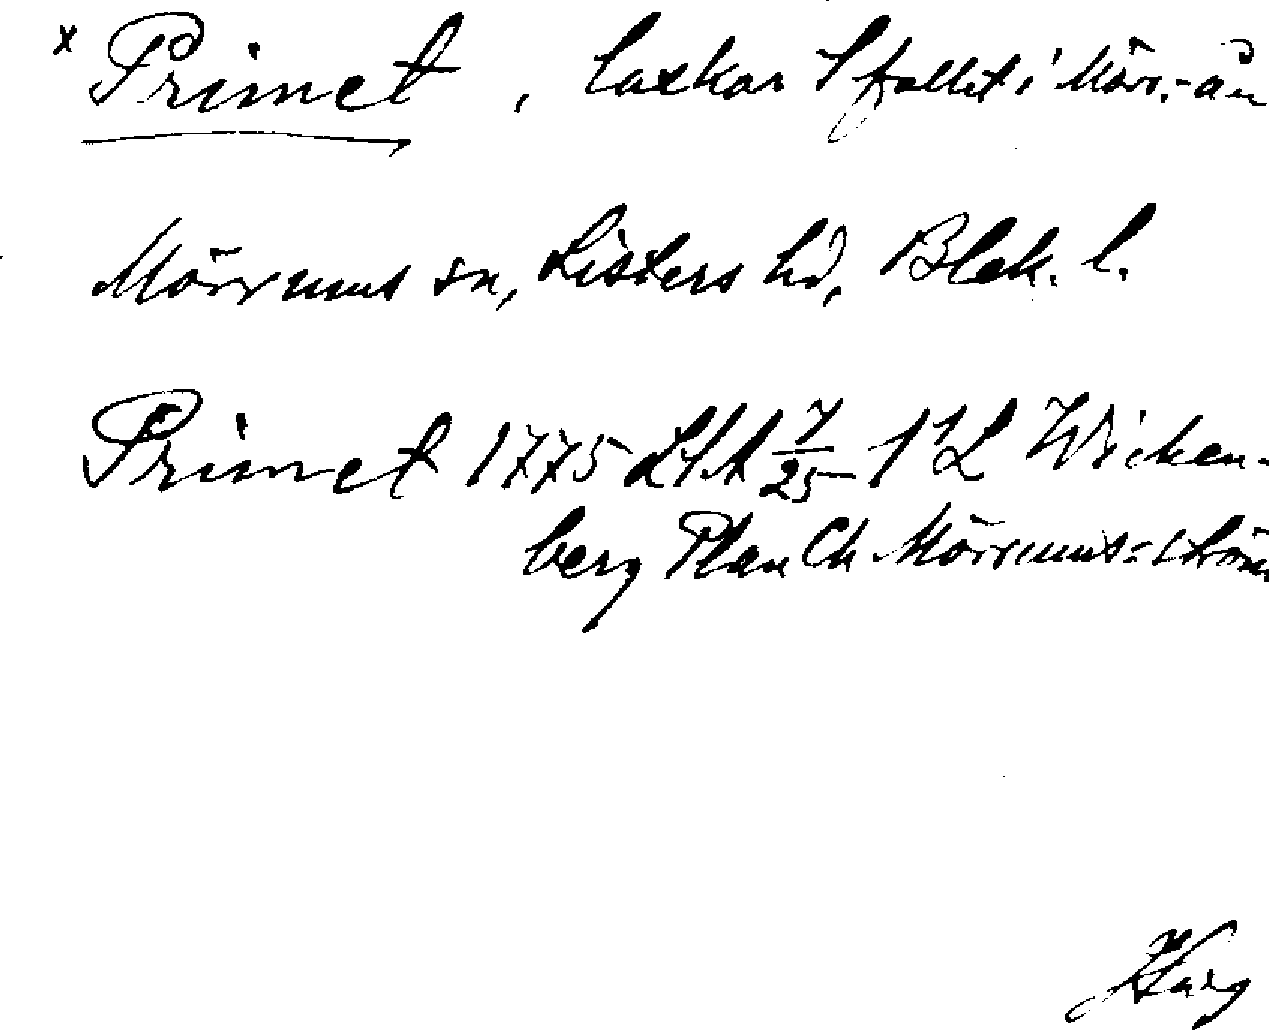 x Primet, laxkar i fallet i Mörr.-ån
Mörrums sn, Listers hd, Blek. l.
Primet 1775 LSA 7/25 Wicken-
berg Plan Ch Mörrums-ström